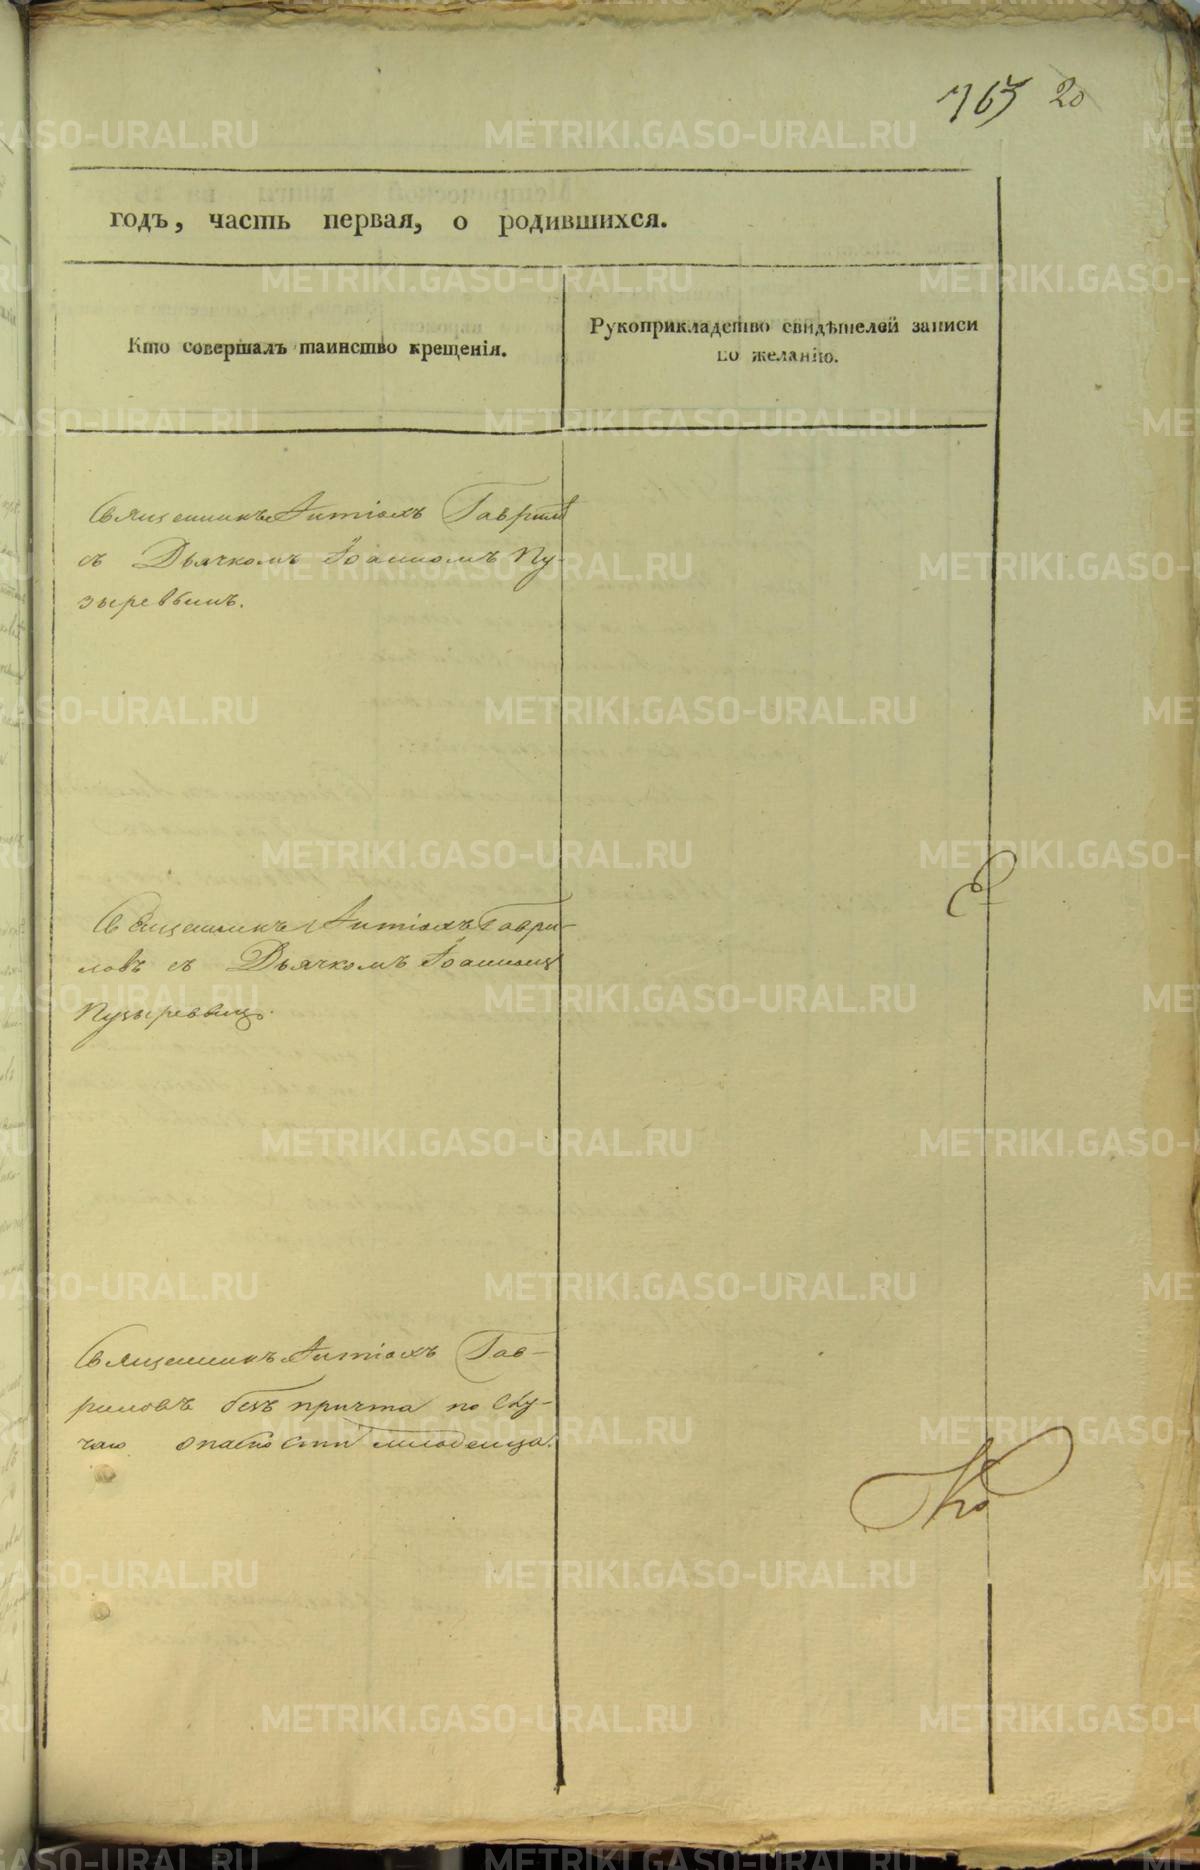 763 20
годъ, часть первая, о родившихся.
Кто совершалъ таинство крещенія.
Рукоприкладство свидѣтелей записи
по желанію.
Священникъ Антіохъ Гаврилъ
съ Дьячкомъ Іоанномъ Пу-
зыревымъ.
Священникъ Антіохъ Гаври-
ловъ съ Дьячкомъ Іоанномъ
Пузыревымъ.
Священникъ Антіохъ Гав-
риловъ безъ причта по слу-
чаю опасности младенца.
METRIKI.GASO-URAL.RU